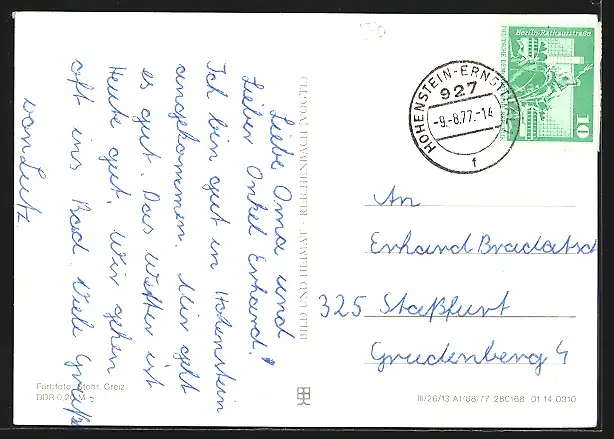 Liebe Oma und
Lieber Onkel Erhard!
Ich bin gut in Hohenstein
angekommen. Mir geht
es gut. Das Wetter ist
Heute gut. Wir gehen
oft ins Bad. Viele Grüße
von Lutz.
BILD UND HEIMAT · REICHENBACH (VOGTL)
Farbfoto: Mohr, Greiz
DDR 0,20 M
HOHENSTEIN-ERNSTTHAL
927
-9.-8.77.-14
f
Berlin-Rathausstraße
10
An
Erhard Bradatsch
325 Staßfurt
Grudenberg 4
III/26/13 A1/68/77 280168 01 14 0310